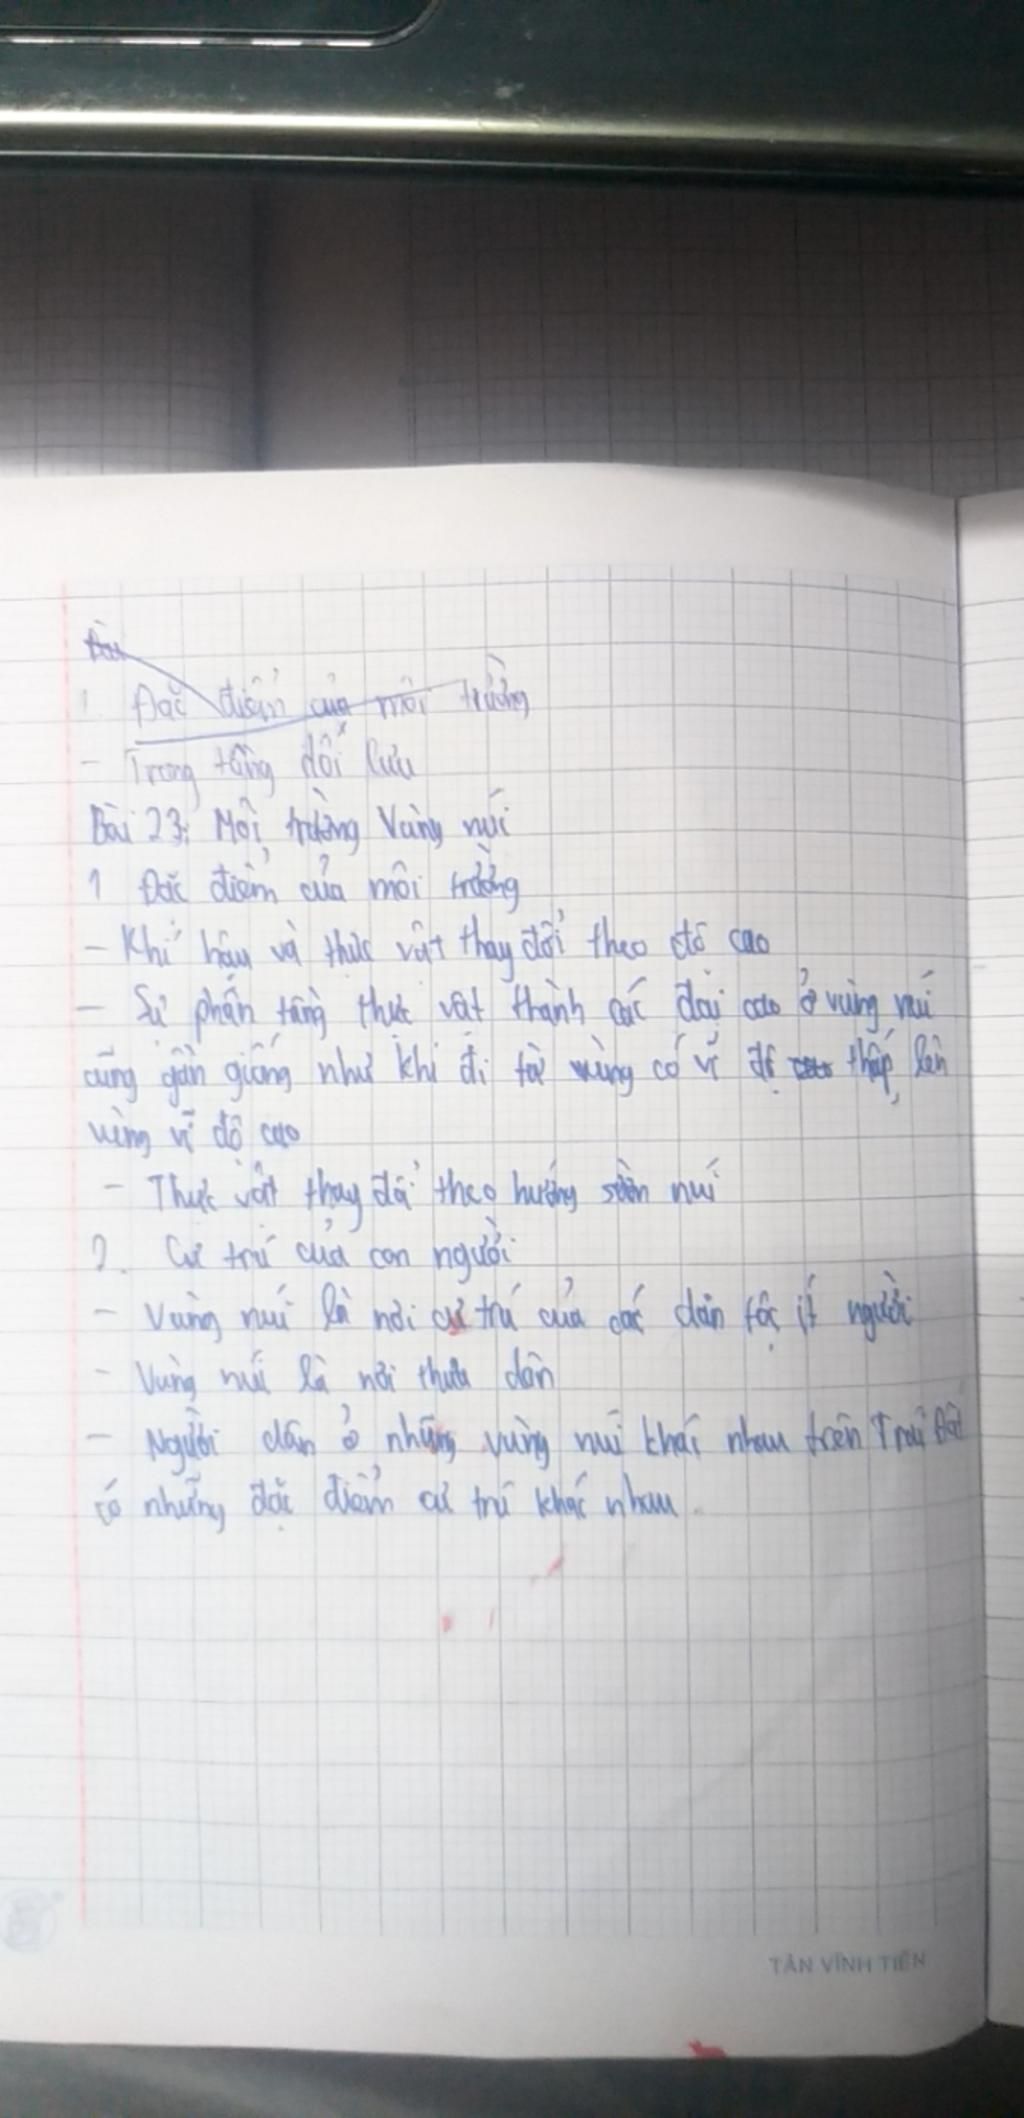 Bài
1. Đặc điểm của môi trường
- Trong tầng đối lưu
Bài 23: Môi trường Vùng núi
1 Đặc điểm của môi trường
- Khí hậu và thực vật thay đổi theo độ cao
- Sự phân tầng thực vật thành các đai cao ở vùng núi
cũng gần giống như khi đi từ vùng có vĩ độ thấp lên
vùng vĩ độ cao
- Thực vật thay đổi theo hướng sườn núi
2. Cư trú của con người
- Vùng núi là nơi cư trú của các dân tộc ít người
- Vùng núi là nơi thưa dân
- Người dân ở những vùng núi khác nhau trên Trái Đất
có những đặc điểm cư trú khác nhau.
TÂN VĨNH TIẾN